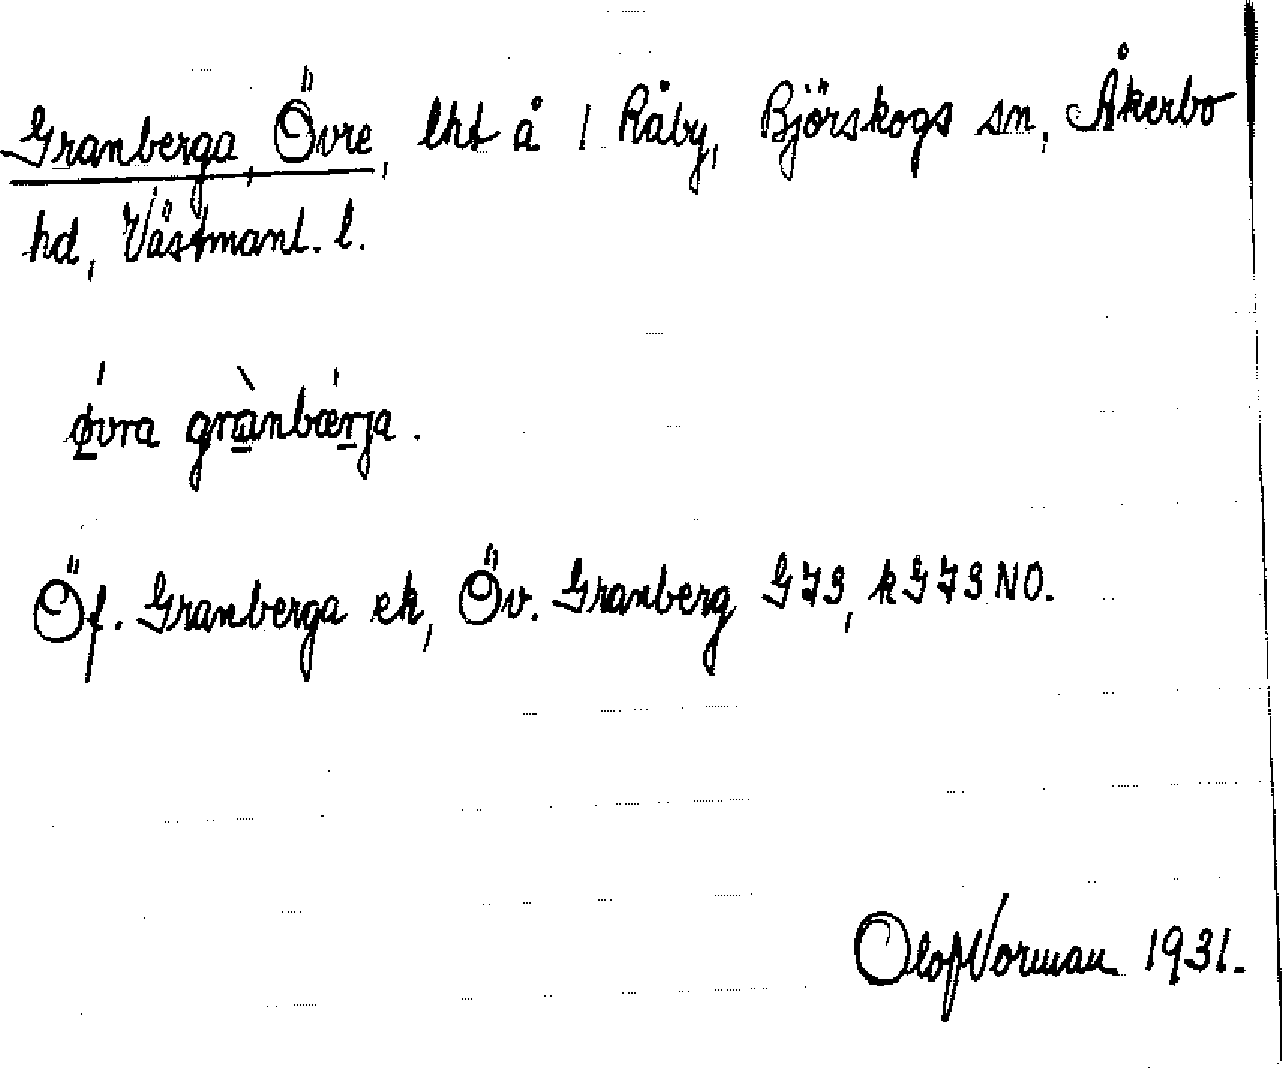 Granberga, Övre, lht å 1 Råby, Björskogs sn, Åkerbo
hd, Västmanl. l.
ǿvra grànbǽrja.
Öf. Granberga ek, Öv. Granberg GJ3, kGJ3NO.
Olof Norman 1931.